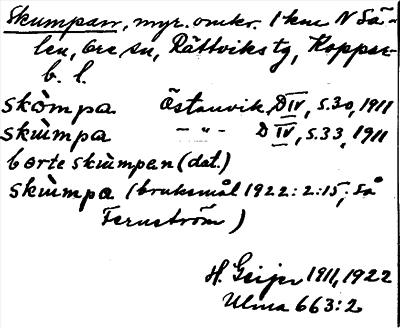 Skumpan, myr. omkr. 1 km N Så-
len, Ore sn, Rättviks tg, Koppar-
b. l.
skòmpa Östanvik, D IV, s.30, 1911
skùmpa - " - D IV, s.33, 1911
borte skùmpan (dat.)
skùmpa (bruksmål 1922: 2:15, så
Fernström)
H. Geijer 1911, 1922
Ulma 663:2